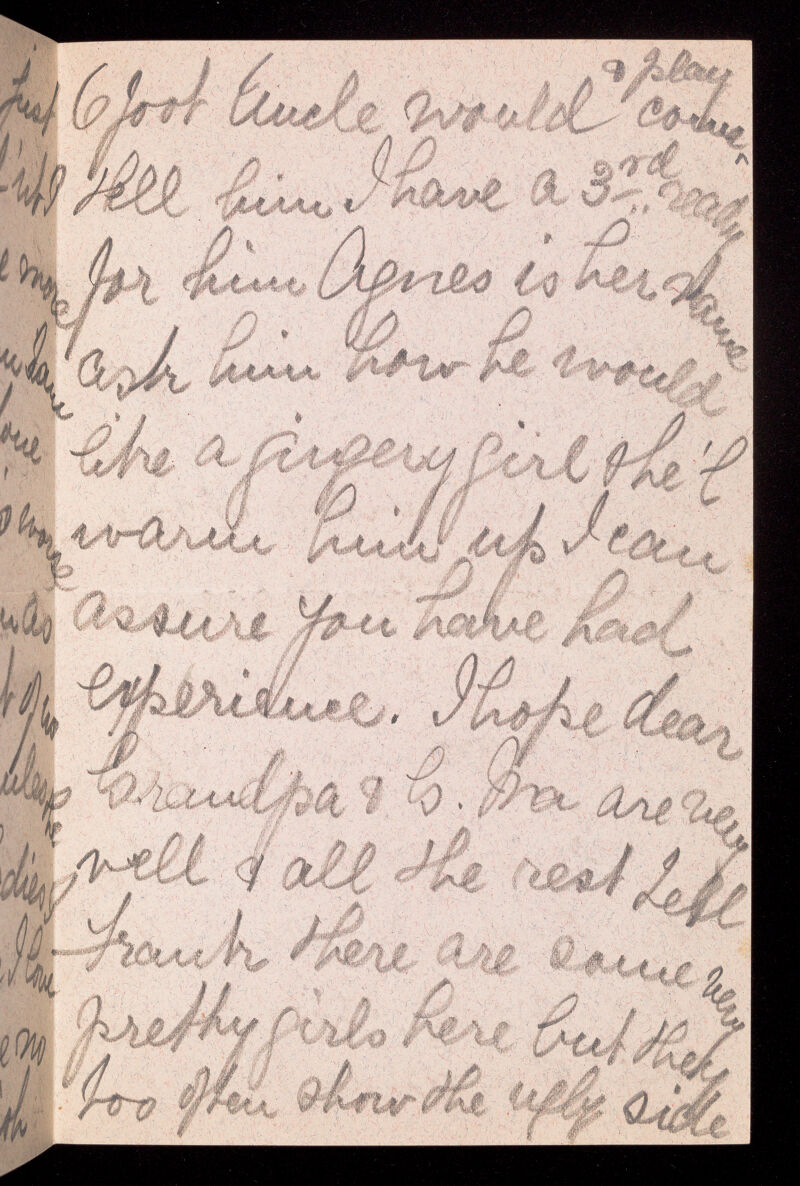 just
I
more
I am
love
worse
as
t of no
unless
ladies
I love
e no
& play
6 foot Uncle would come.
tell him I have a 3rd ready
for him Agnes is her name
ask him how he would
like a gingery girl she'l
warm him up I can
assure you have had
experience. I hope dear
Grandpa & G. Ma are very
well & all the rest Tell
Frank there are some very
pretty girls here but they
too often show the ugly side